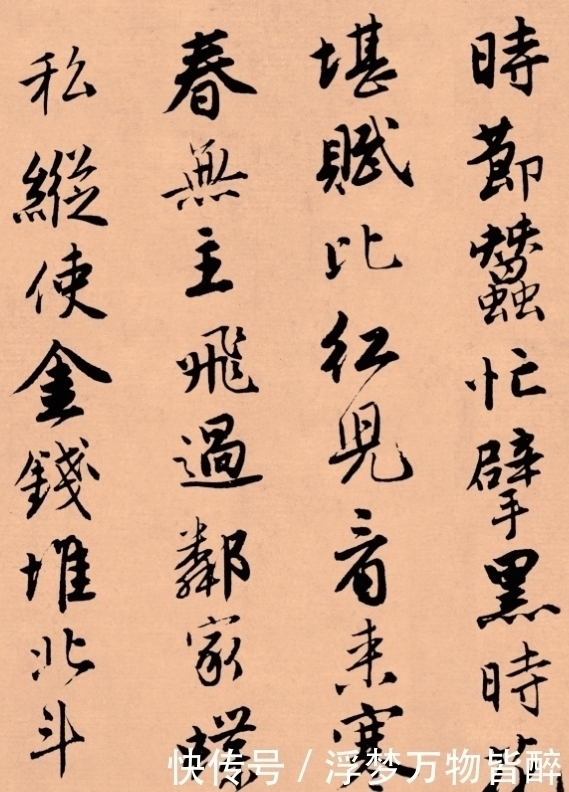 時節蠶忙擘黑時
堪賦比紅兒看来寒
春無主飛過鄰家蝶
私縱使金錢堆北斗
快传号 / 浮梦万物皆醉